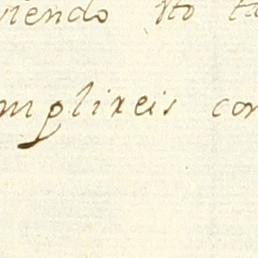 viendo no ta
mplireis con